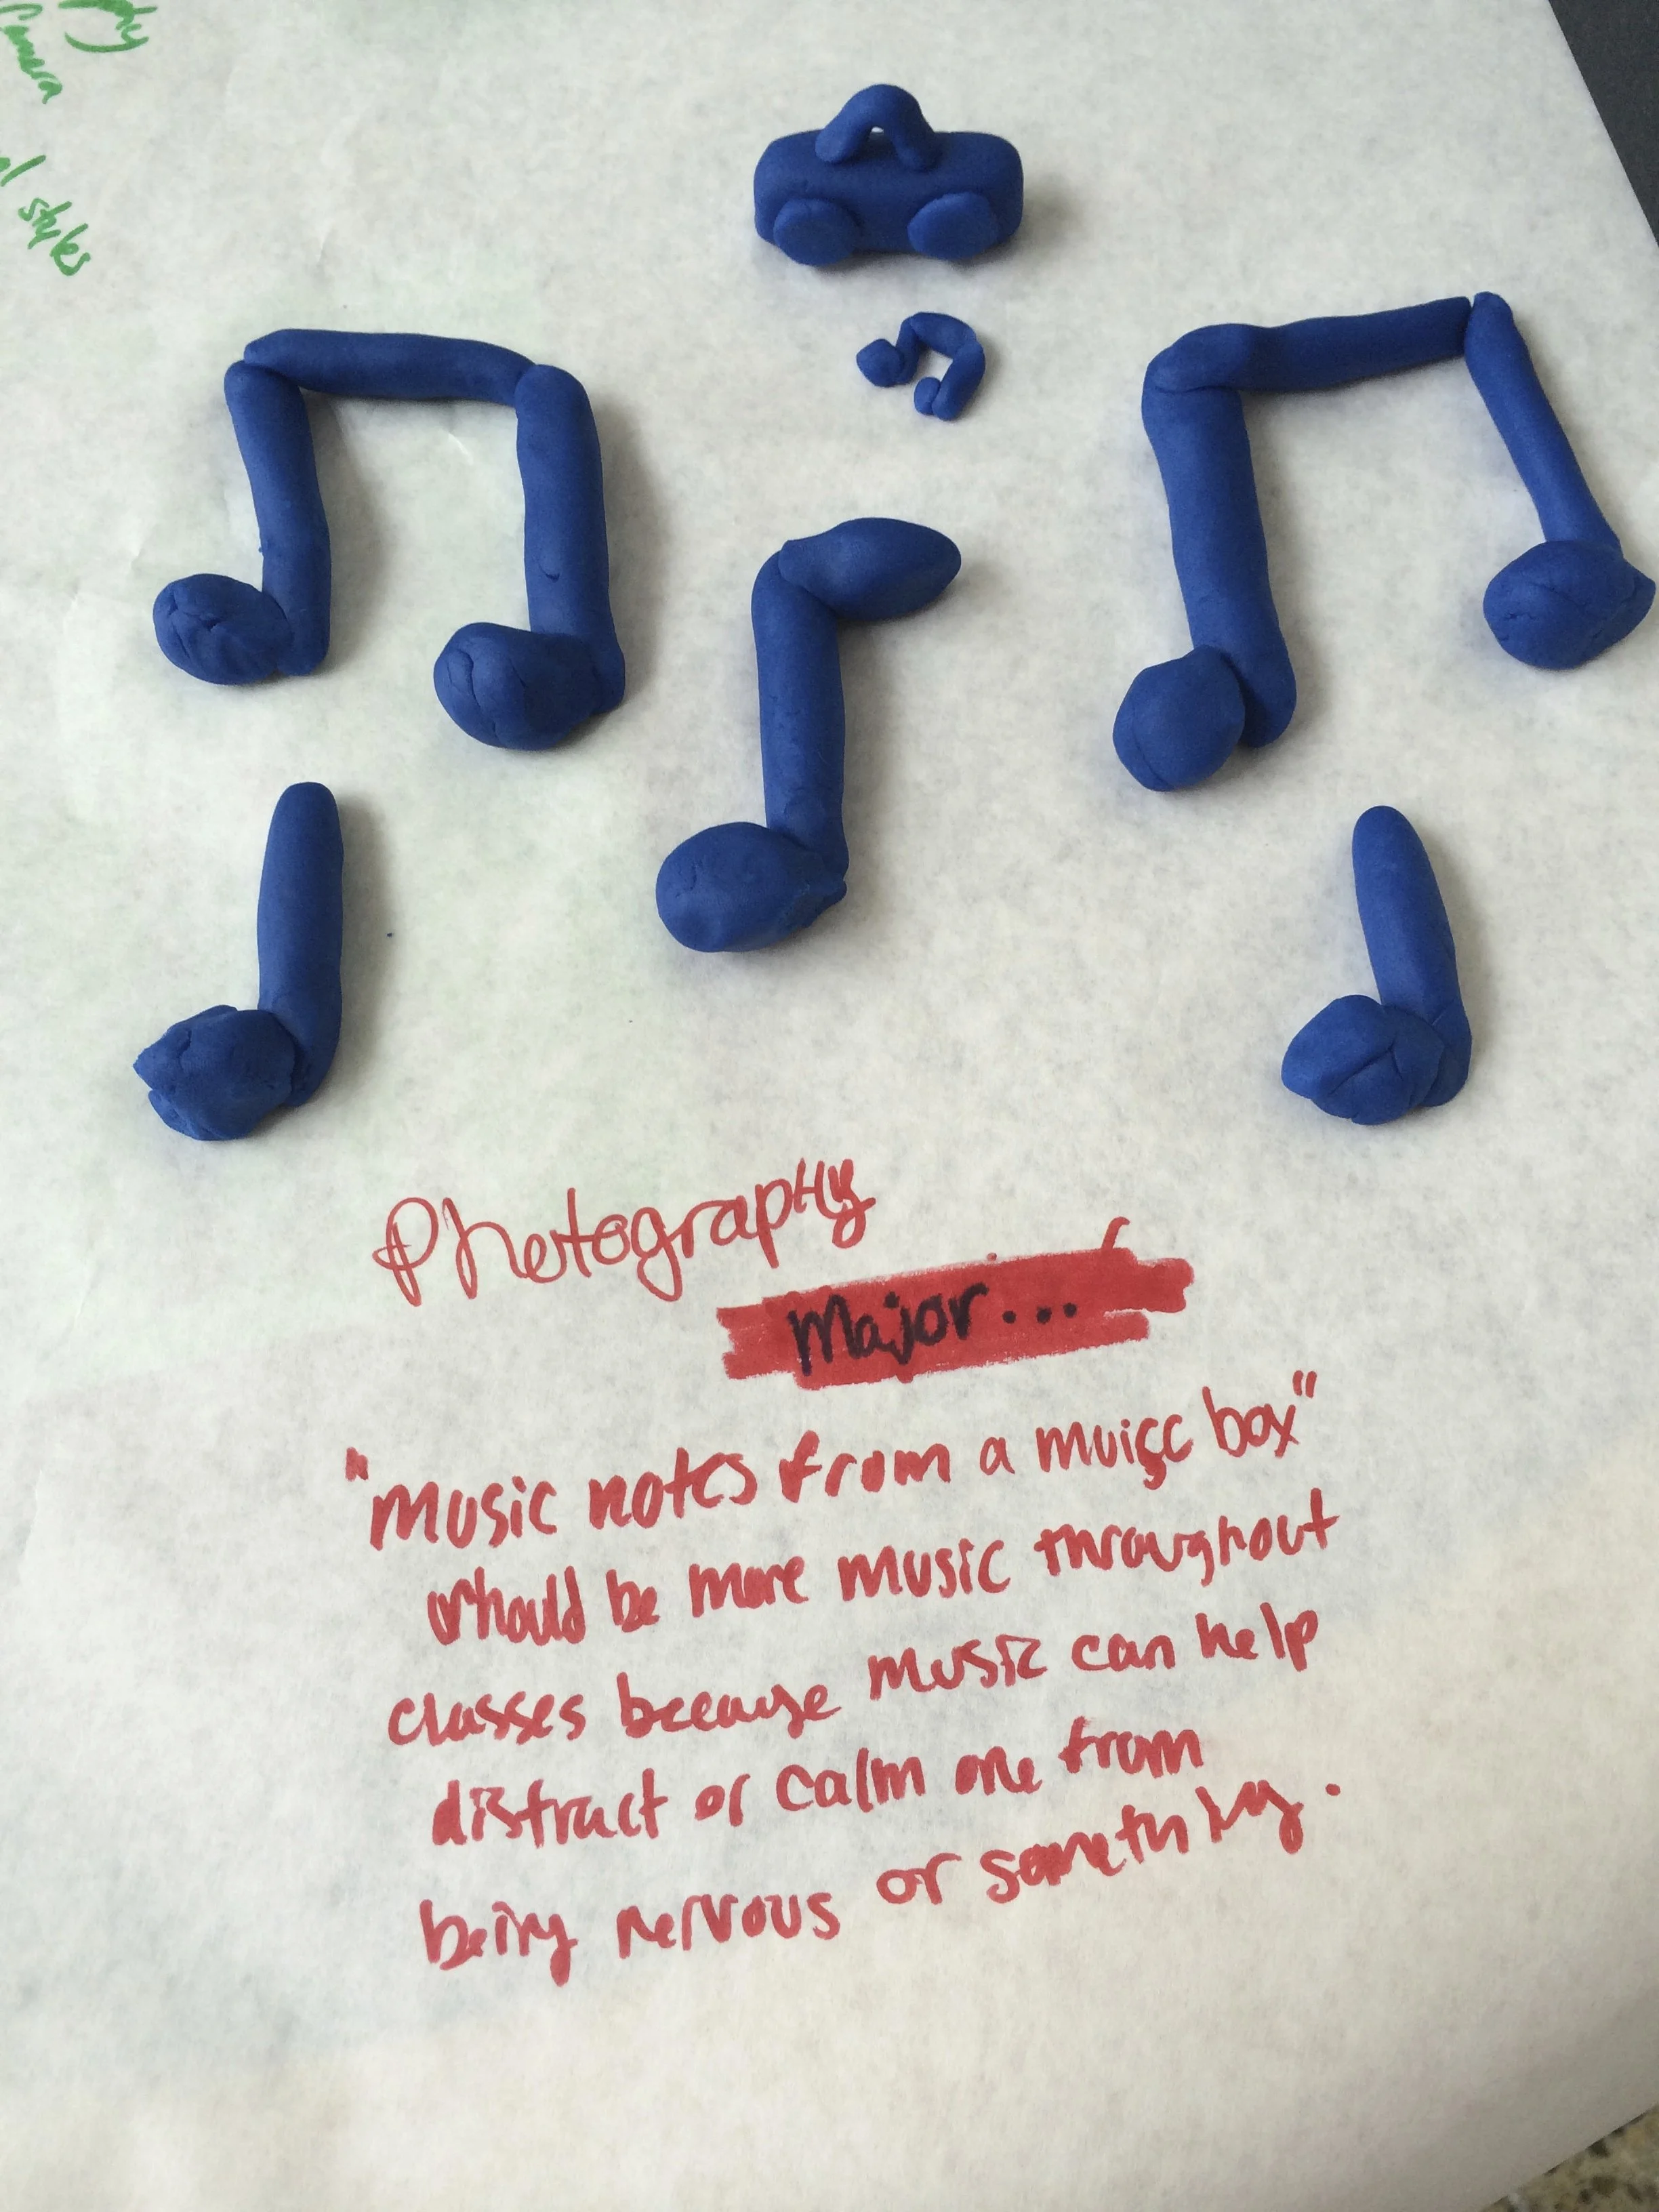 Camera
styles
Photography
Major...
"Music notes from a muisc box"
should be more music throughout
classes because music can help
distract or calm one from
being nervous or something.